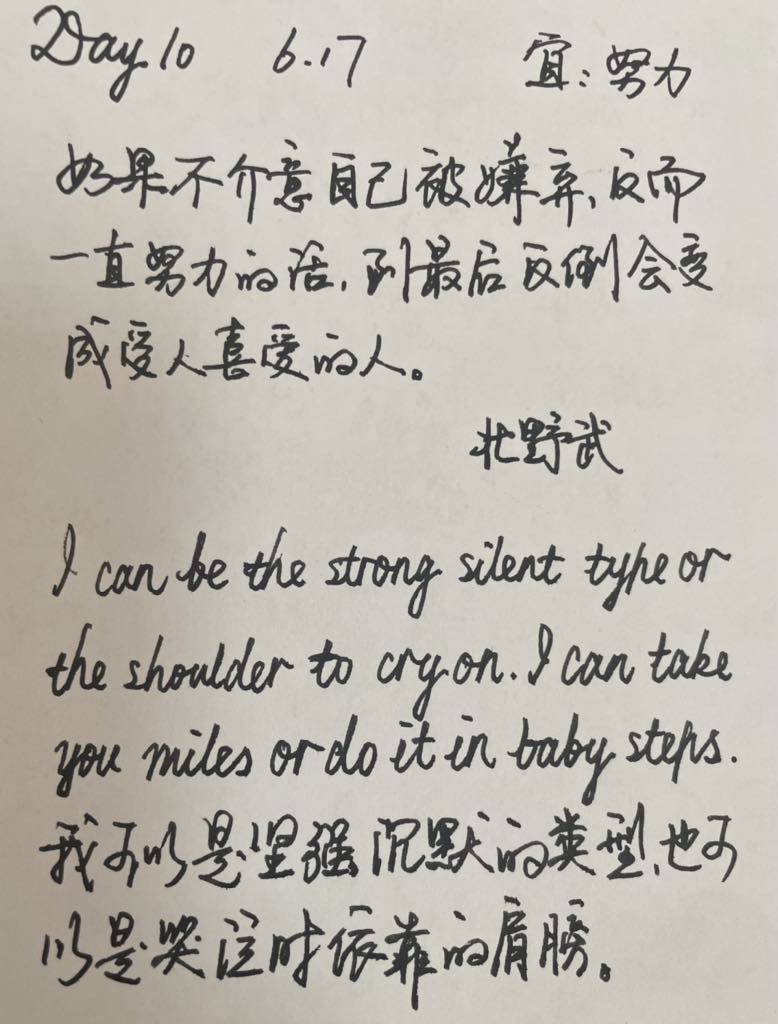 Day 10 6.17 宜：努力
如果不介意自己被嫌弃，反而
一直努力的话，到最后反倒会变
成受人喜爱的人。
北野武
I can be the strong silent type or
the shoulder to cry on. I can take
you miles or do it in baby steps.
我可以是坚强沉默的类型，也可
以是哭泣时依靠的肩膀。